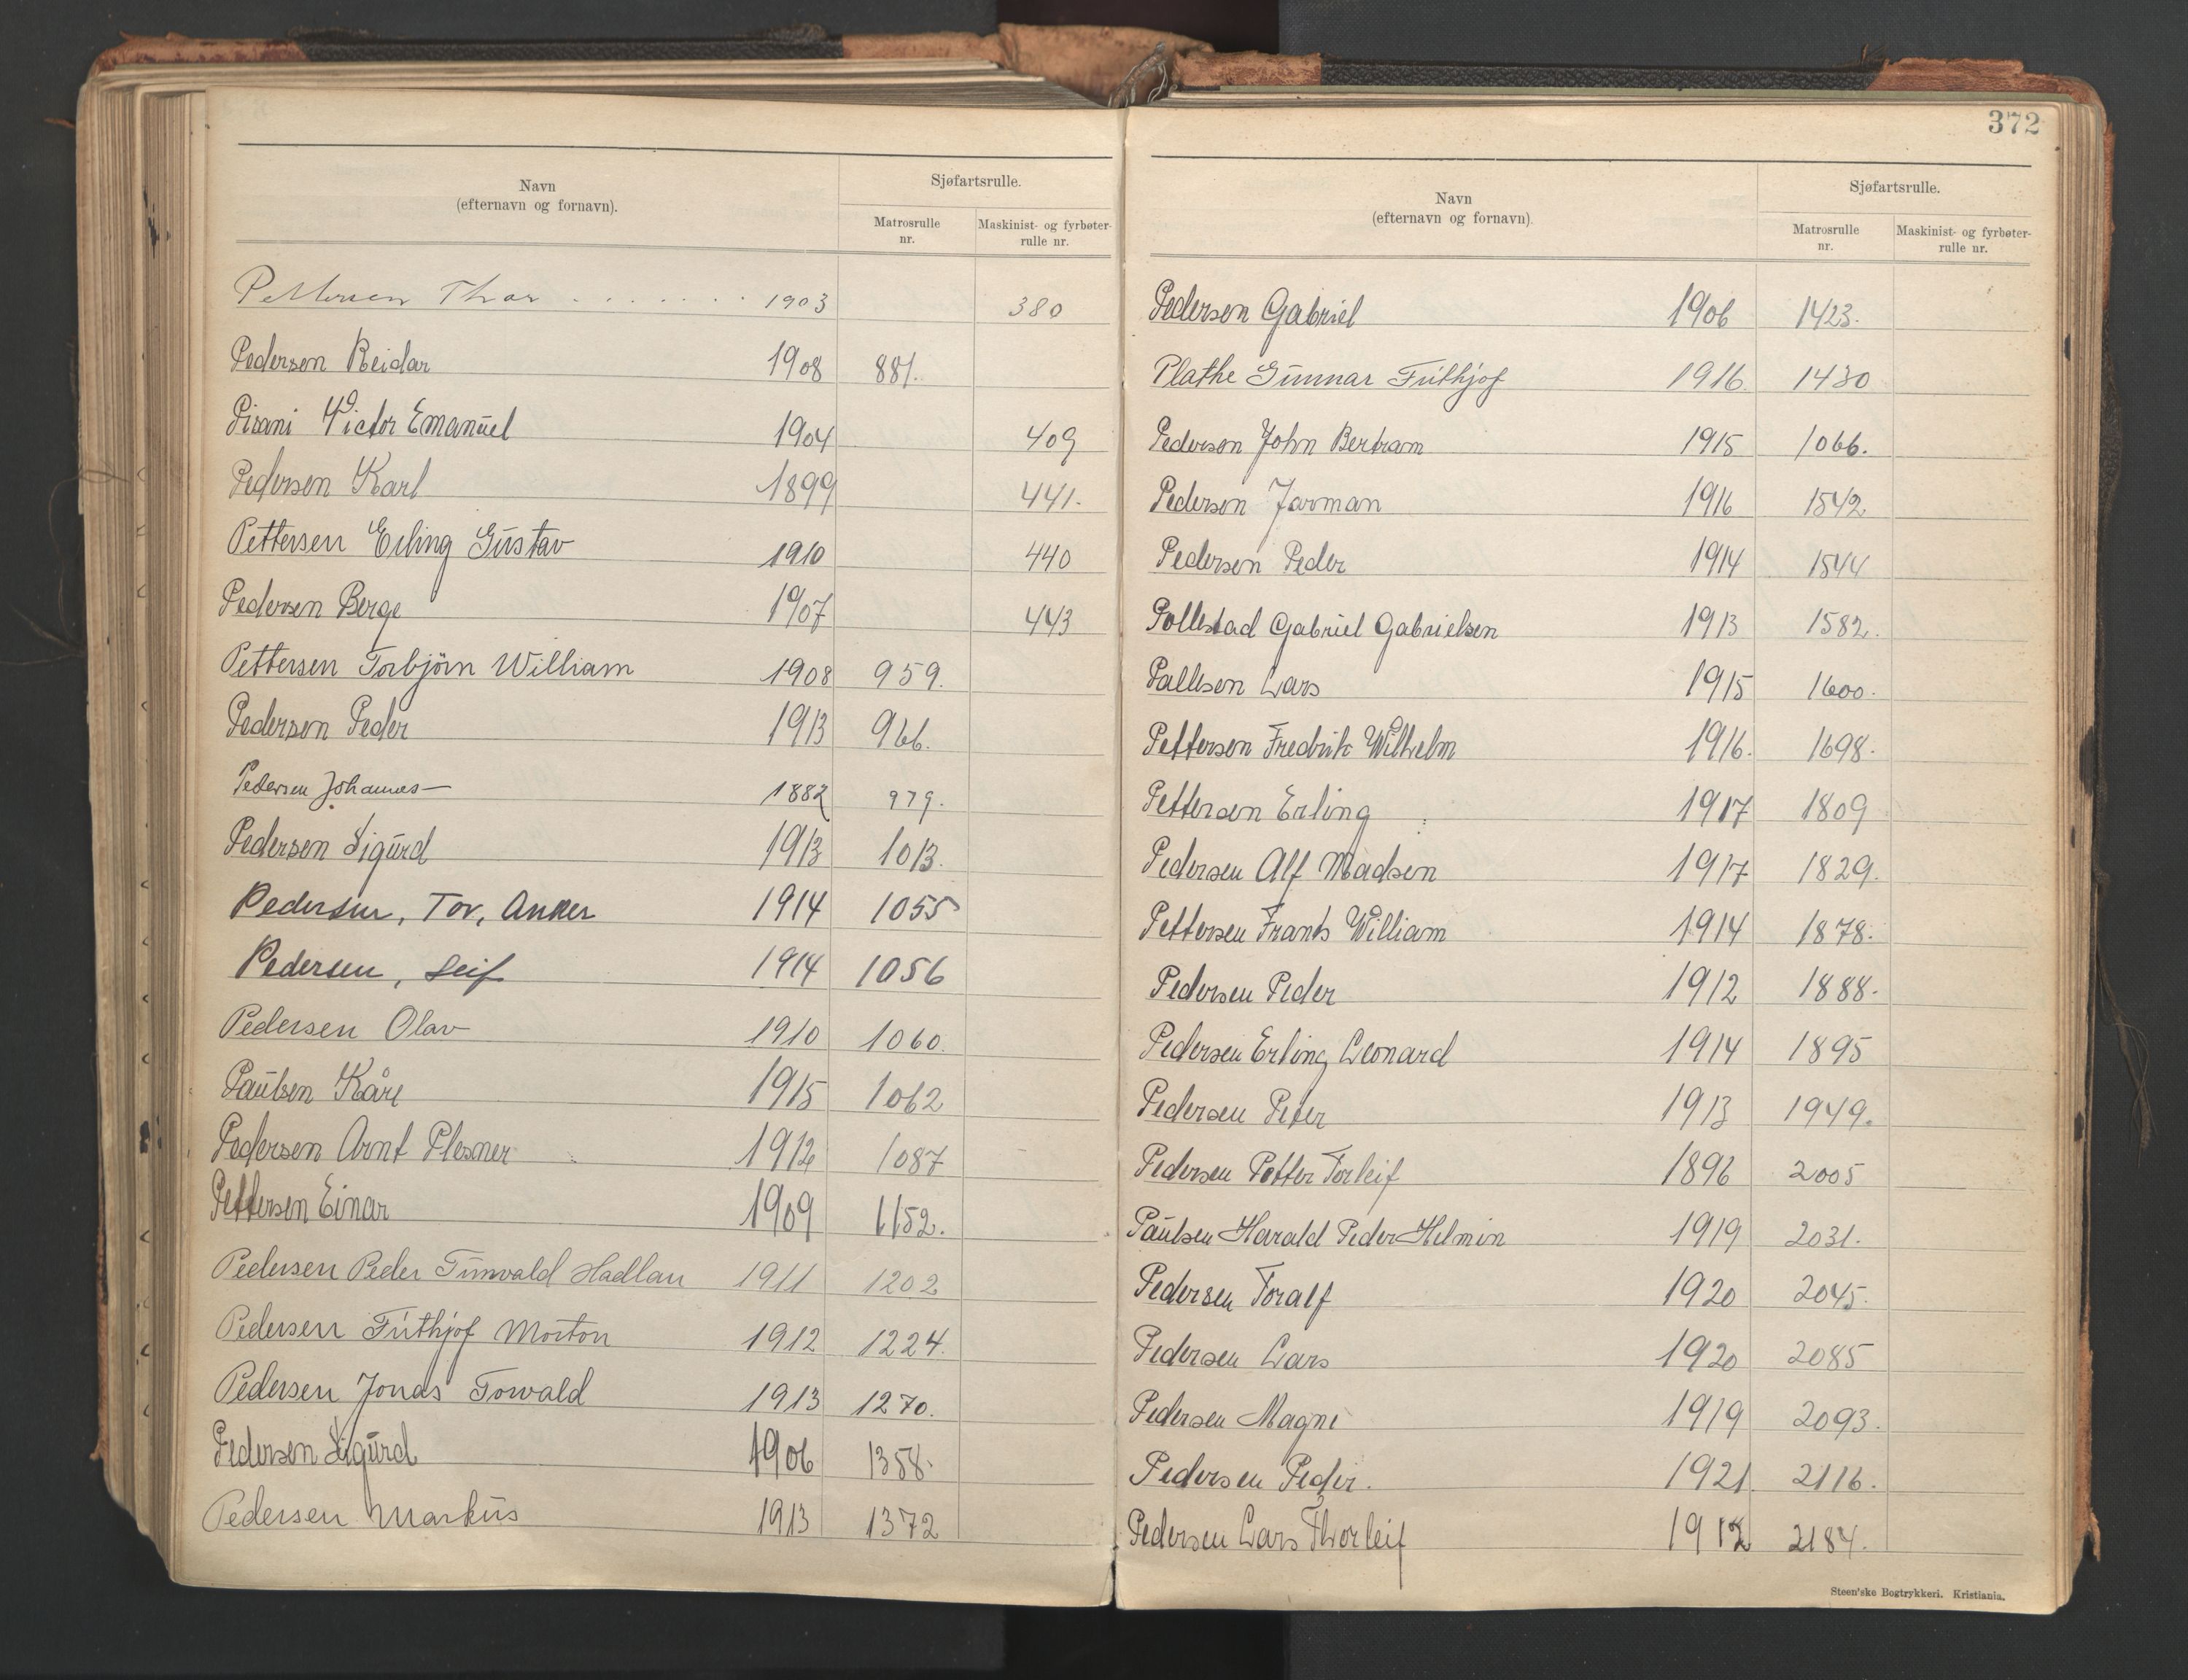 372
Navn
(efternavn og fornavn).
Sjøfartsrulle.
Matrosrulle
nr.
Maskinist- og fyrbøter-
rulle nr.
Pettersen Thor . . . . . . . 1903 380
Pedersen Reidar 1908 881.
Pisani Victor Emanuel 1904 409
Pedersen Karl 1899 441.
Pettersen Erling Gustav 1910 440
Pedersen Berge 1907 443
Pettersen Torbjörn William 1908 959.
Pedersen Peder 1913 966.
Pedersen Johannes — 1882 979.
Pedersen Sigurd 1913 1013.
Pedersen, Tor, Anker 1914 1055
Pedersen, Leif 1914 1056
Pedersen Olav 1910 1060.
Paulsen Kåre 1915 1062
Pedersen Arnt Plesner 1912 1087
Pettersen Einar 1909 1152.
Pedersen Peder Tinwald Hadlau 1911 1202
Pedersen Frithjof Morton 1912 1224.
Pedersen Jonas Torvald 1913 1270.
Pedersen Sigurd 1906 1358.
Pedersen Markus 1913 1372
Navn
(efternavn og fornavn).
Sjøfartsrulle.
Matrosrulle
nr.
Maskinist- og fyrbøter-
rulle nr.
Pedersen Gabriel 1906 1423.
Plathe Gunnar Frithjof 1916 1430
Pedersen John Bertram 1915 1066.
Pedersen Jarman 1916 1542
Pedersen Peder 1914 1544
Pollestad Gabriel Gabrielsen 1913 1582.
Pallesen Lars 1915 1600.
Pettersen Fredrik Wilhelm 1916. 1698.
Pettersen Erling 1917 1809
Pedersen Alf Madsen 1917 1829.
Pettersen Frants William 1914 1878.
Pedersen Peder 1912 1888.
Pedersen Erling Leonard 1914 1895
Pedersen Peter 1913 1949.
Pedersen Petter Torleif 1896 2005
Paulsen Harald Peder Helmin 1919 2031.
Pedersen Toralf 1920 2045.
Pedersen Lars 1920 2085
Pedersen Magne 1919 2093.
Pedersen Peder. 1921. 2116.
Pedersen Lars Thorleif 1912 2184.
Steen'ske Bogtrykkeri. Kristiania.